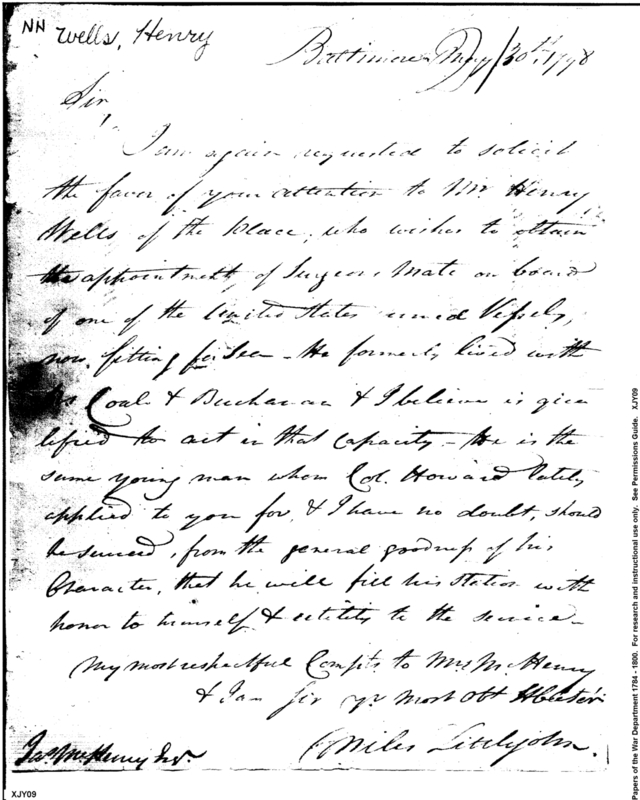 NN
Wells, Henry
Baltimore May 30th. 1798
Sir
I am again requested to solicit
the favor of your attention to Mr. Henry
Wells of the place, who wishes to obtain
the appointment of Surgeons Mate on board
of one of the United States armed Vessels,
now fitting for Sea - He formerly lived with
Coale & Buchanan & I believe is qua
lified to act in that capacity - He is the
same young man whom Col. Howard lately
applied to you for, & I have no doubt, should
he succeed, from the general goodness of his
Character, that he will fill his Station with
honor to himself & utility to the service -
My most respectful Compts. to Mrs. McHenry
& I am Sir yr. most Obt
Miles Littlejohn.
Jas. McHenry Esqr.
XJY09
Papers of the War Department 1784 - 1800. For research and instructional use only. See Permissions Guide. XJY09